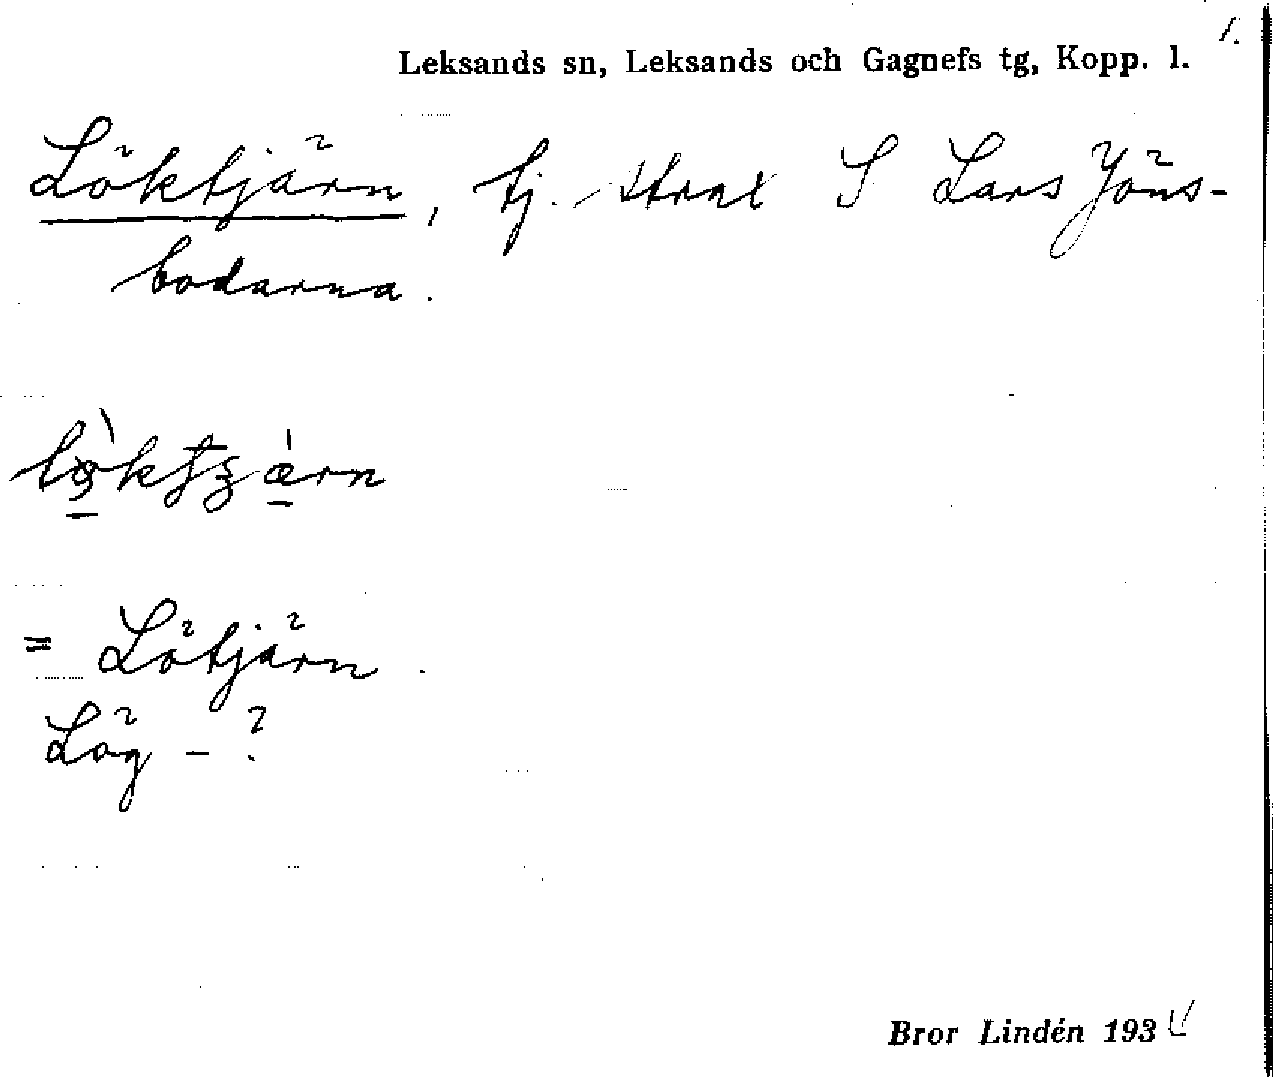 1.
Leksands sn, Leksands och Gagnefs tg, Kopp. l.
Löktjärn, tj. strax S Lars Jöns-
bodarna.
= Lötjärn.
Lög - ?
Bror Lindén 1934